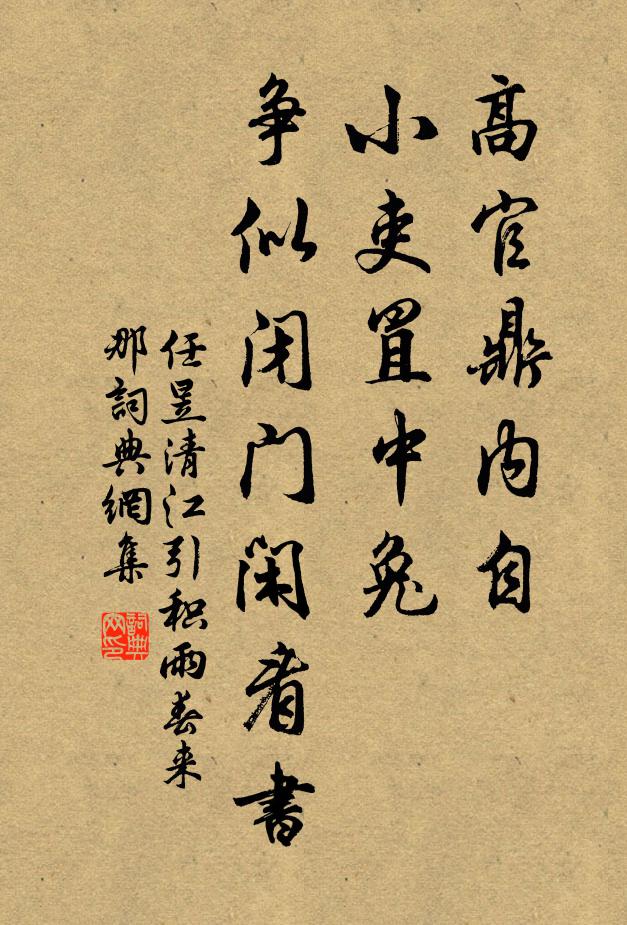 高官鼎内自
小吏罝中兔
争似闭门闲看書
任昱清江引积雨春来
那詞典網集
詞典网印